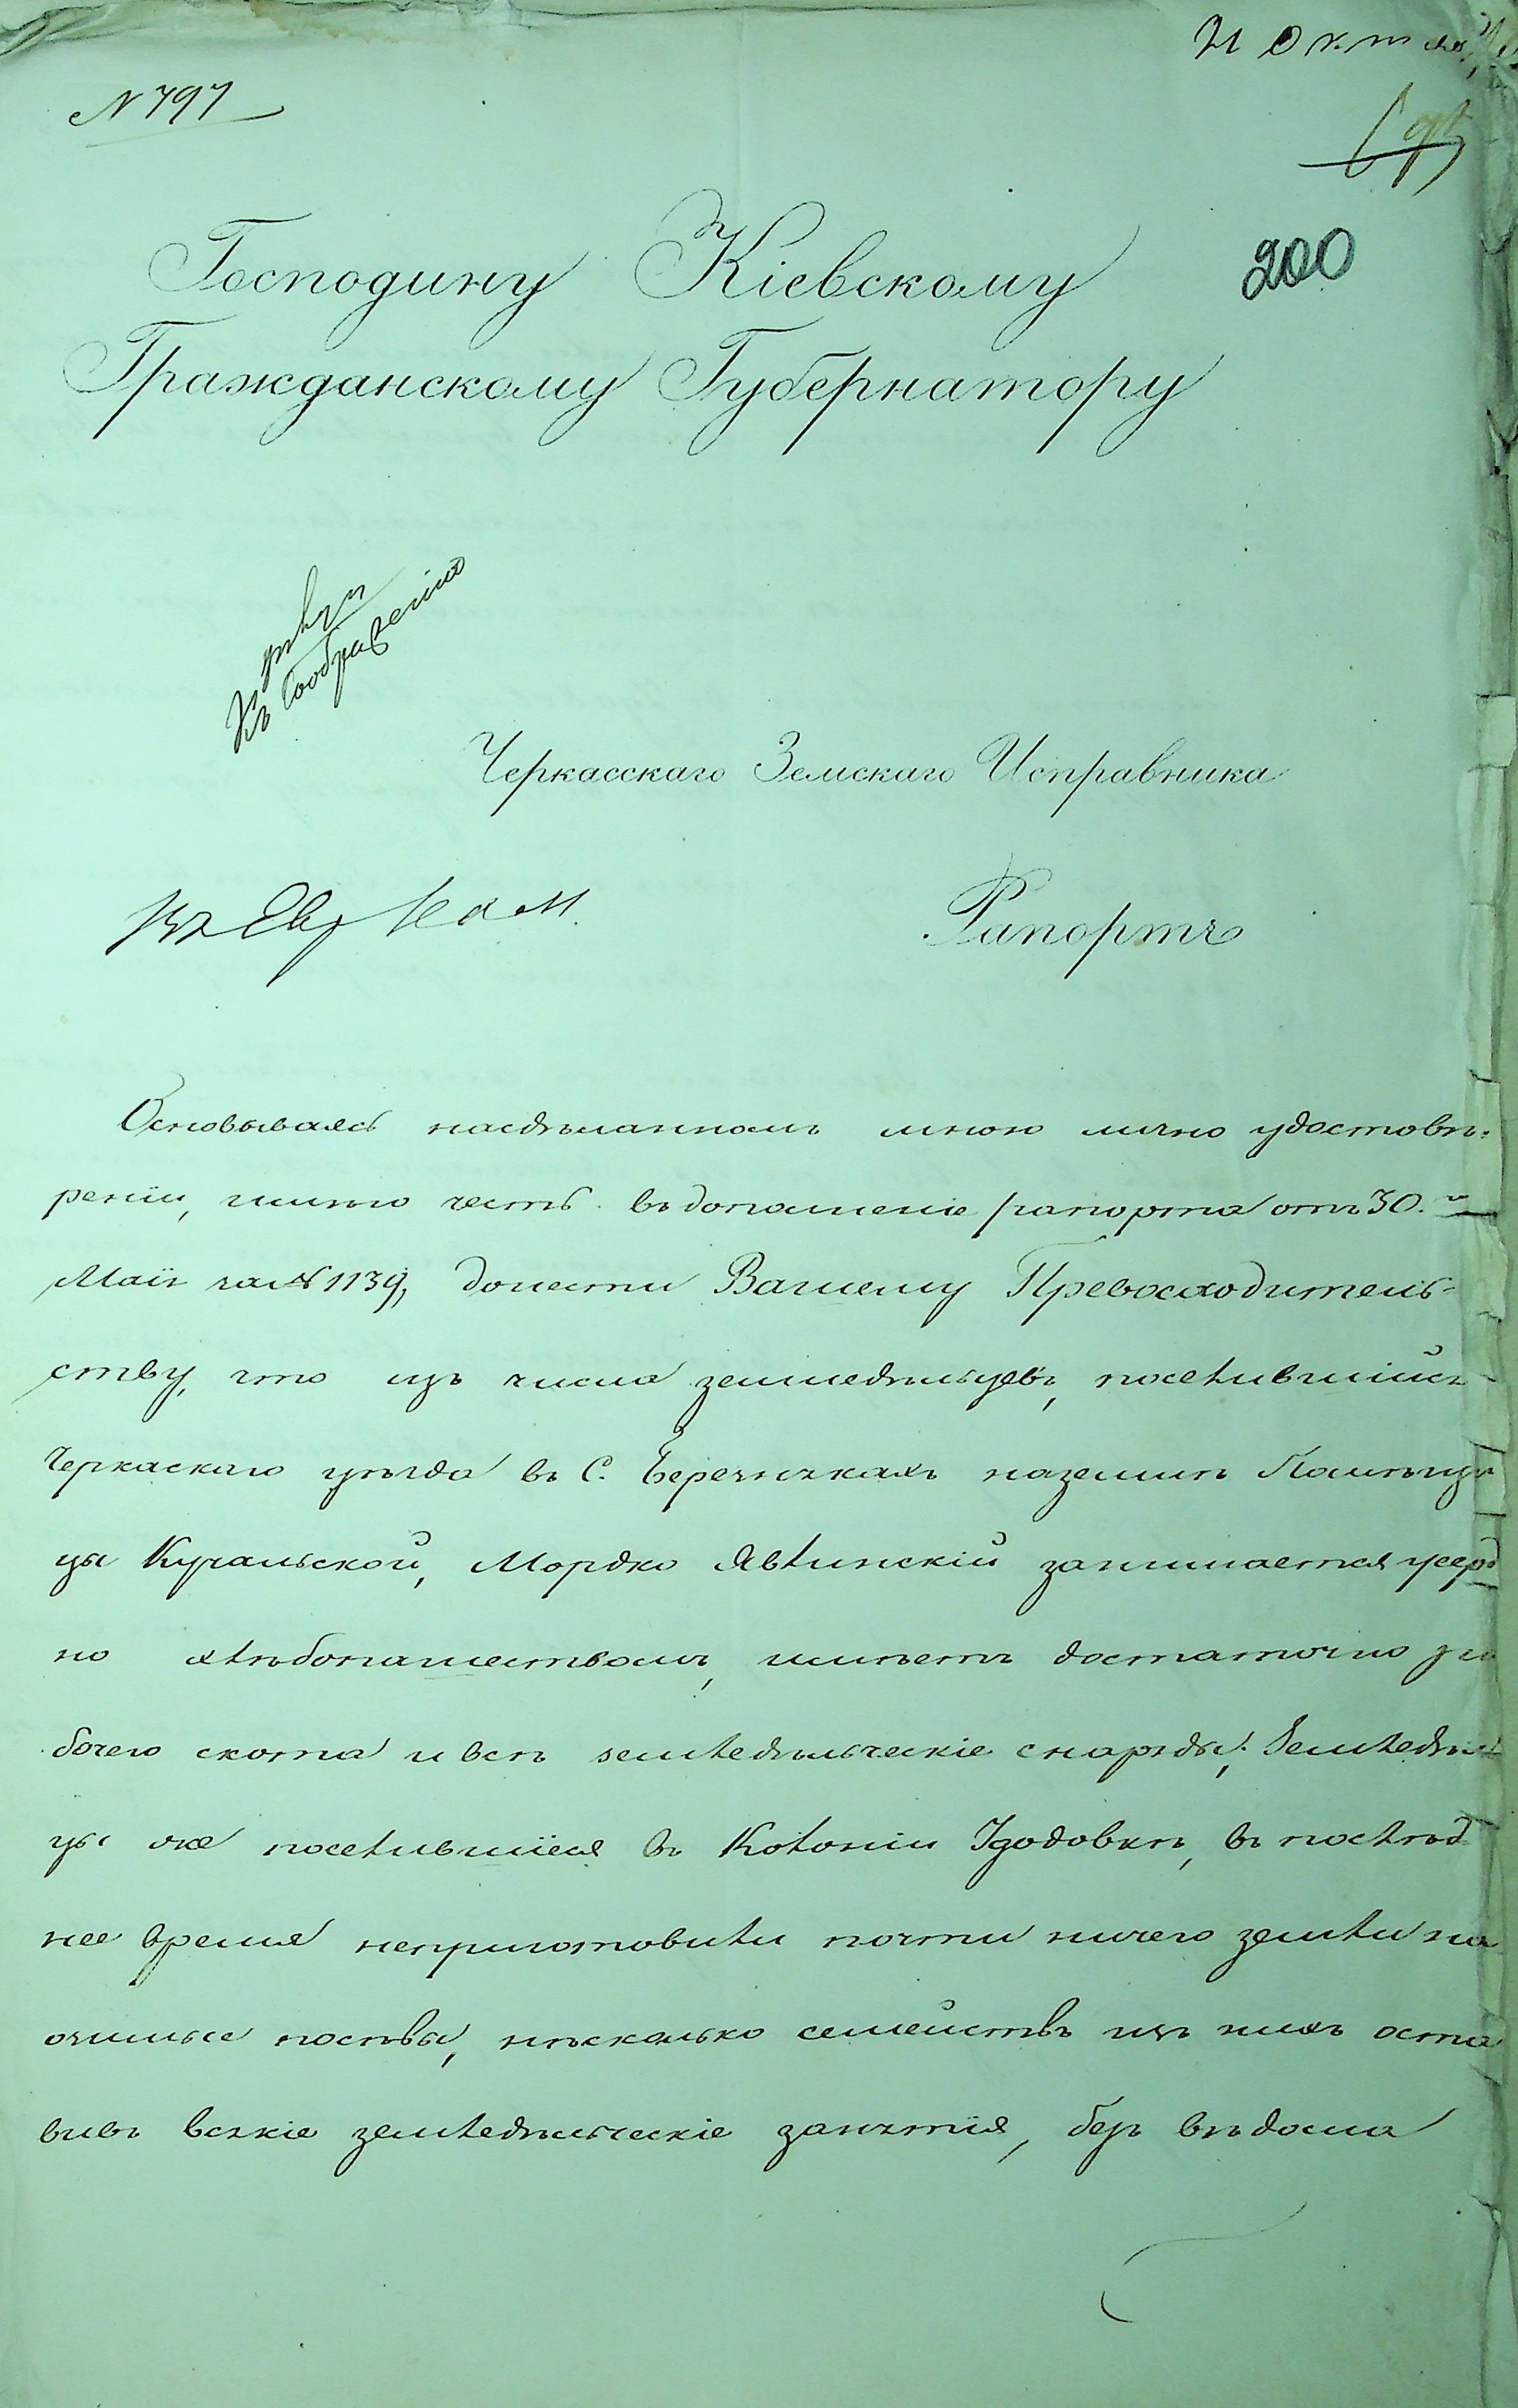 21 Октя
N 797
200
Господину Кіевскому
Гражданскому Губернатору
къ соображенію
Черкасскаго Земскаго Исправника
Рапортъ
Основываясь насдѣланномъ мною лично удостовѣ-
реніи, имѣю честь въдополненіе рапорта отъ 30.го
Маія за N 1139, донести Вашему Превосходитель-
ству, что изъ числа земледѣльцевъ, поселившійсъ
Черкаскаго уѣзда въ С. Березнякахъ наземлѣ Помѣщи
цы Кучальской, Мордко Явлинскій занимается усерд
но хлѣбопашествомъ, имѣетъ достаточно ра
бочего скота и всѣ земледѣльческіе снаряды; Земледѣль
цы же поселившіеся въ Колоніи Іудовкѣ, въ послѣд
нее время неприготовили почти ничего земли на
озимые посѣвы, нѣсколько семействъ изъ нихъ оста
вивъ всякіе земледѣльческіе занятія, безъ вѣдома